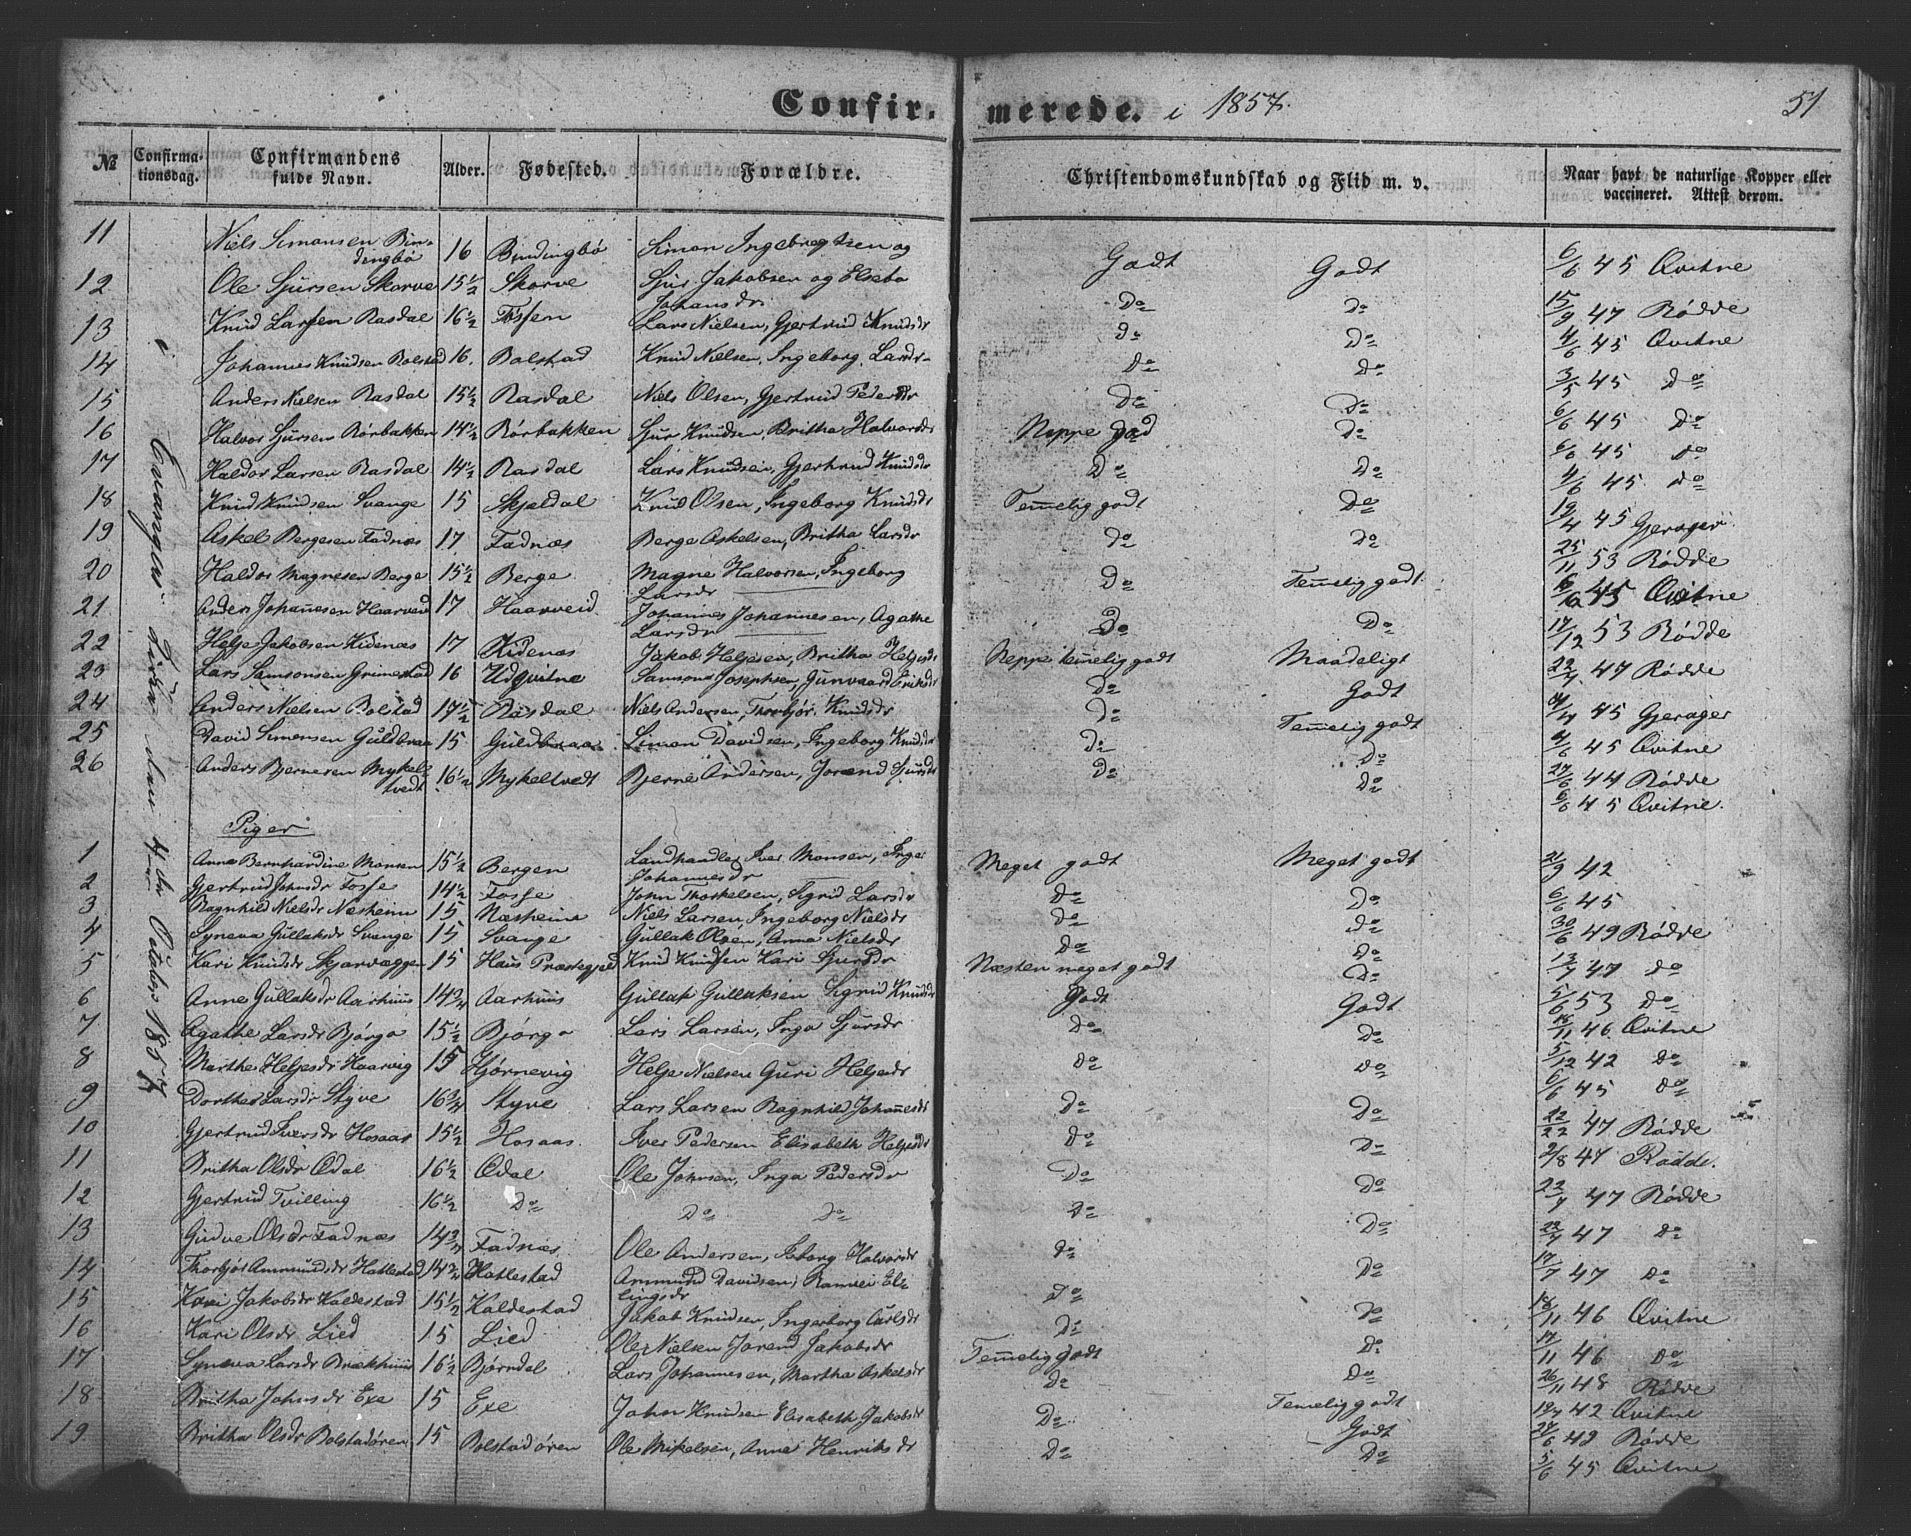 Confirmerede. i 1857. 51
№ Confirmationsdag. Confirmandens fulde Navn. Alder. Fødested. Forældre. Christendomskundskab og Flid m. v. Naar havt de naturlige Kopper eller vaccineret. Attest derom.
i Evanger Kirke den 4de October 1857
11 Niels Simonsen Bindingbø 16 Bindingbø Simon Ingebregtsen og Godt Godt 6/6 45 Qvitne
12 Ole Sjursen Skorve 15 1/2 Skorve Sjur Jakobsen og Elsebo Johansdr Do Do 15/9 47 Rødde
13 Knud Larsen Rasdal 16 1/2 Fossen Lars Nielsen, Gjertrud Knudsdr Do Do 4/6 45 Qvitne
14 Johannes Knudsen Bolstad 16. Bolstad Knud Nielsen, Ingeborg Larsdr Do Do 3/5 45 Do
15 Anders Nielsen Rasdal 15 1/2 Rasdal Niels Olsen, Gjertrud Pedersdr Do Do 6/6 45 Do
16 Halvor Sjursen Rørbakken 14 1/2 Rørbakken Sjur Knudsen, Britha Halvorsdr Neppe god Do 6/6 45 Do
17 Haldor Larsen Rasdal 14 1/2 Rasdal Lars Knudsen, Gjertrud Knudsdr Do Do 4/6 45 Do
18 Knud Knudsen Svange 15 Skjeldal Knud Olsen, Ingeborg Knudsdr Temelig godt Do 19/4 45 Gjerager
19 Askel Bergesen Fadnæs 17 Fadnæs Berge Askelsen, Britha Larsdr Do Do 25/11 53 Rødde
20 Haldor Magnesen Berge 15 1/2 Berge Magne Halvorsen, Ingeborg Larsdr Do Temelig godt 45 Qvitne
21 Anders Johannesen Haarveid 17 Haarveid Johannes Johannesen, Agathe Larsdr Do Do 17/12 53 Rødde
22 Helje Jakobsen Kidenæs 17 Kidenæs Jakob Heljesen, Britha Heljesdr Neppe temelig godt Maadeligt 22/7 47 Rødde
23 Lars Samsonsen Grimestad 16 Udqvitne Samson Josephsen, Gunvaar Eriksdr Do Godt 45 Gjerager
24 Anders Nielsen Bolstad 17 1/2 Rasdal Niels Andersen, Thorbjør Knudsdr Do Temelig godt 4/6 45 Qvitne
25 David Simonsen Guldbraa 15 Guldbraa Simon Davidsen, Ingeborg Knudsdr Do Do 27/6 44 Rødde
26 Anders Bjernesen Mykeltvedt 16 1/2 Mykeltvedt Bjerne Andersen, Jorand Sjursdr Do Do 6/6 45 Qvitne.
Piger
1 Anna Bernhardine Monsen 15 1/2 Bergen Landhandler Iver Monsen, Inger Johannesdr Meget godt Meget godt 21/9 42
2 Gjertrud Johnsdr Fosse 14 1/2 Fosse John Thorkelsen, Sigrid Larsdr Do Do 6/6 45
3 Ragnhild Nielsdr Næsheim 15 Næsheim Niels Larsen, Ingeborg Nielsdr Do Do 30/6 49 Rødde
4 Syneva Gullaksdr Svange 15 Svange Gullak Olsen, Anna Nielsdr Do Do 13/7 47 Do
5 Kari Knudsdr Skjorvæggen 15 Haus Præstegjeld Knud Knudsen Kari Sjursdr Næsten meget godt Do 5/6 53 Do
6 Anne Gullaksdr Aarhuus 14 3/4 Aarhuus Gullak Gullaksen Sigrid Knudsdr Godt Godt 18/11 46 Qvitne
7 Agathe Larsdr Bjørgo 15 1/2 Bjørgo Lars Larsen, Inga Sjursdr Do Do 5/12 42 Do
8 Marthe Heljesdr Haarvig 15 Hjørnevig Helje Nielsen Guri Heljesdr Do Do 6/6 45 Do
9 Dorthea Larsdr Styve 16 3/4 Styve Lars Larsen Ragnhild Johannesdr Do Do 47 Rødde
10 Gjertrud Iversdr Hosaas 15 1/2 Hosaas Iver Pedersen Elisabeth Heljesdr Do Do 2/8 47 Rødde.
11 Britha Olsdr Ødal 16 1/2 Ødal Ole Johnsen, Inga Pedersdr Do Do 22/7 47 Rødde
12 Gjertrud Tvilling 16 1/2 Do Do Do Do Do 22/7 47 Do
13 Gudve Olsdr Fadnæs 14 3/4 Fadnæs Ole Andersen, Isborg Halvorsdr Do Do 17/7 47 Do
14 Thorbjør Ammundsdr Hatlestad 14 3/4 Hatlestad Ammund Davidsen, Ramvei Ellingsdr Do Do 18/11 46 Qvitne
15 Kari Jakobsdr Kaldestad 15 1/2 Kaldestad Jakob Knudsen, Ingerborg Carlsdr Do Do 17/11 46 Do
16 Kari Olsdr Lied 15 Lied Ole Nielsen Jorand Jakobsdr Temelig godt Do 26/11 48 Rødde
17 Syneva Larsdr Brækhuus 16 1/2 Bjørndal Lars Johannesen, Martha Askelsdr Do Temelig godt 42 Qvitne
18 Britha Johnsdr Exe 15 Exe John Knudsen Elisabeth Jakobsdr Do Godt 48 Rødde
19 Britha Olsdr Bolstadøren 15 Bolstadøren Ole Mikelsen, Anna Henriksdr Do Do 5/6 45 Qvitne